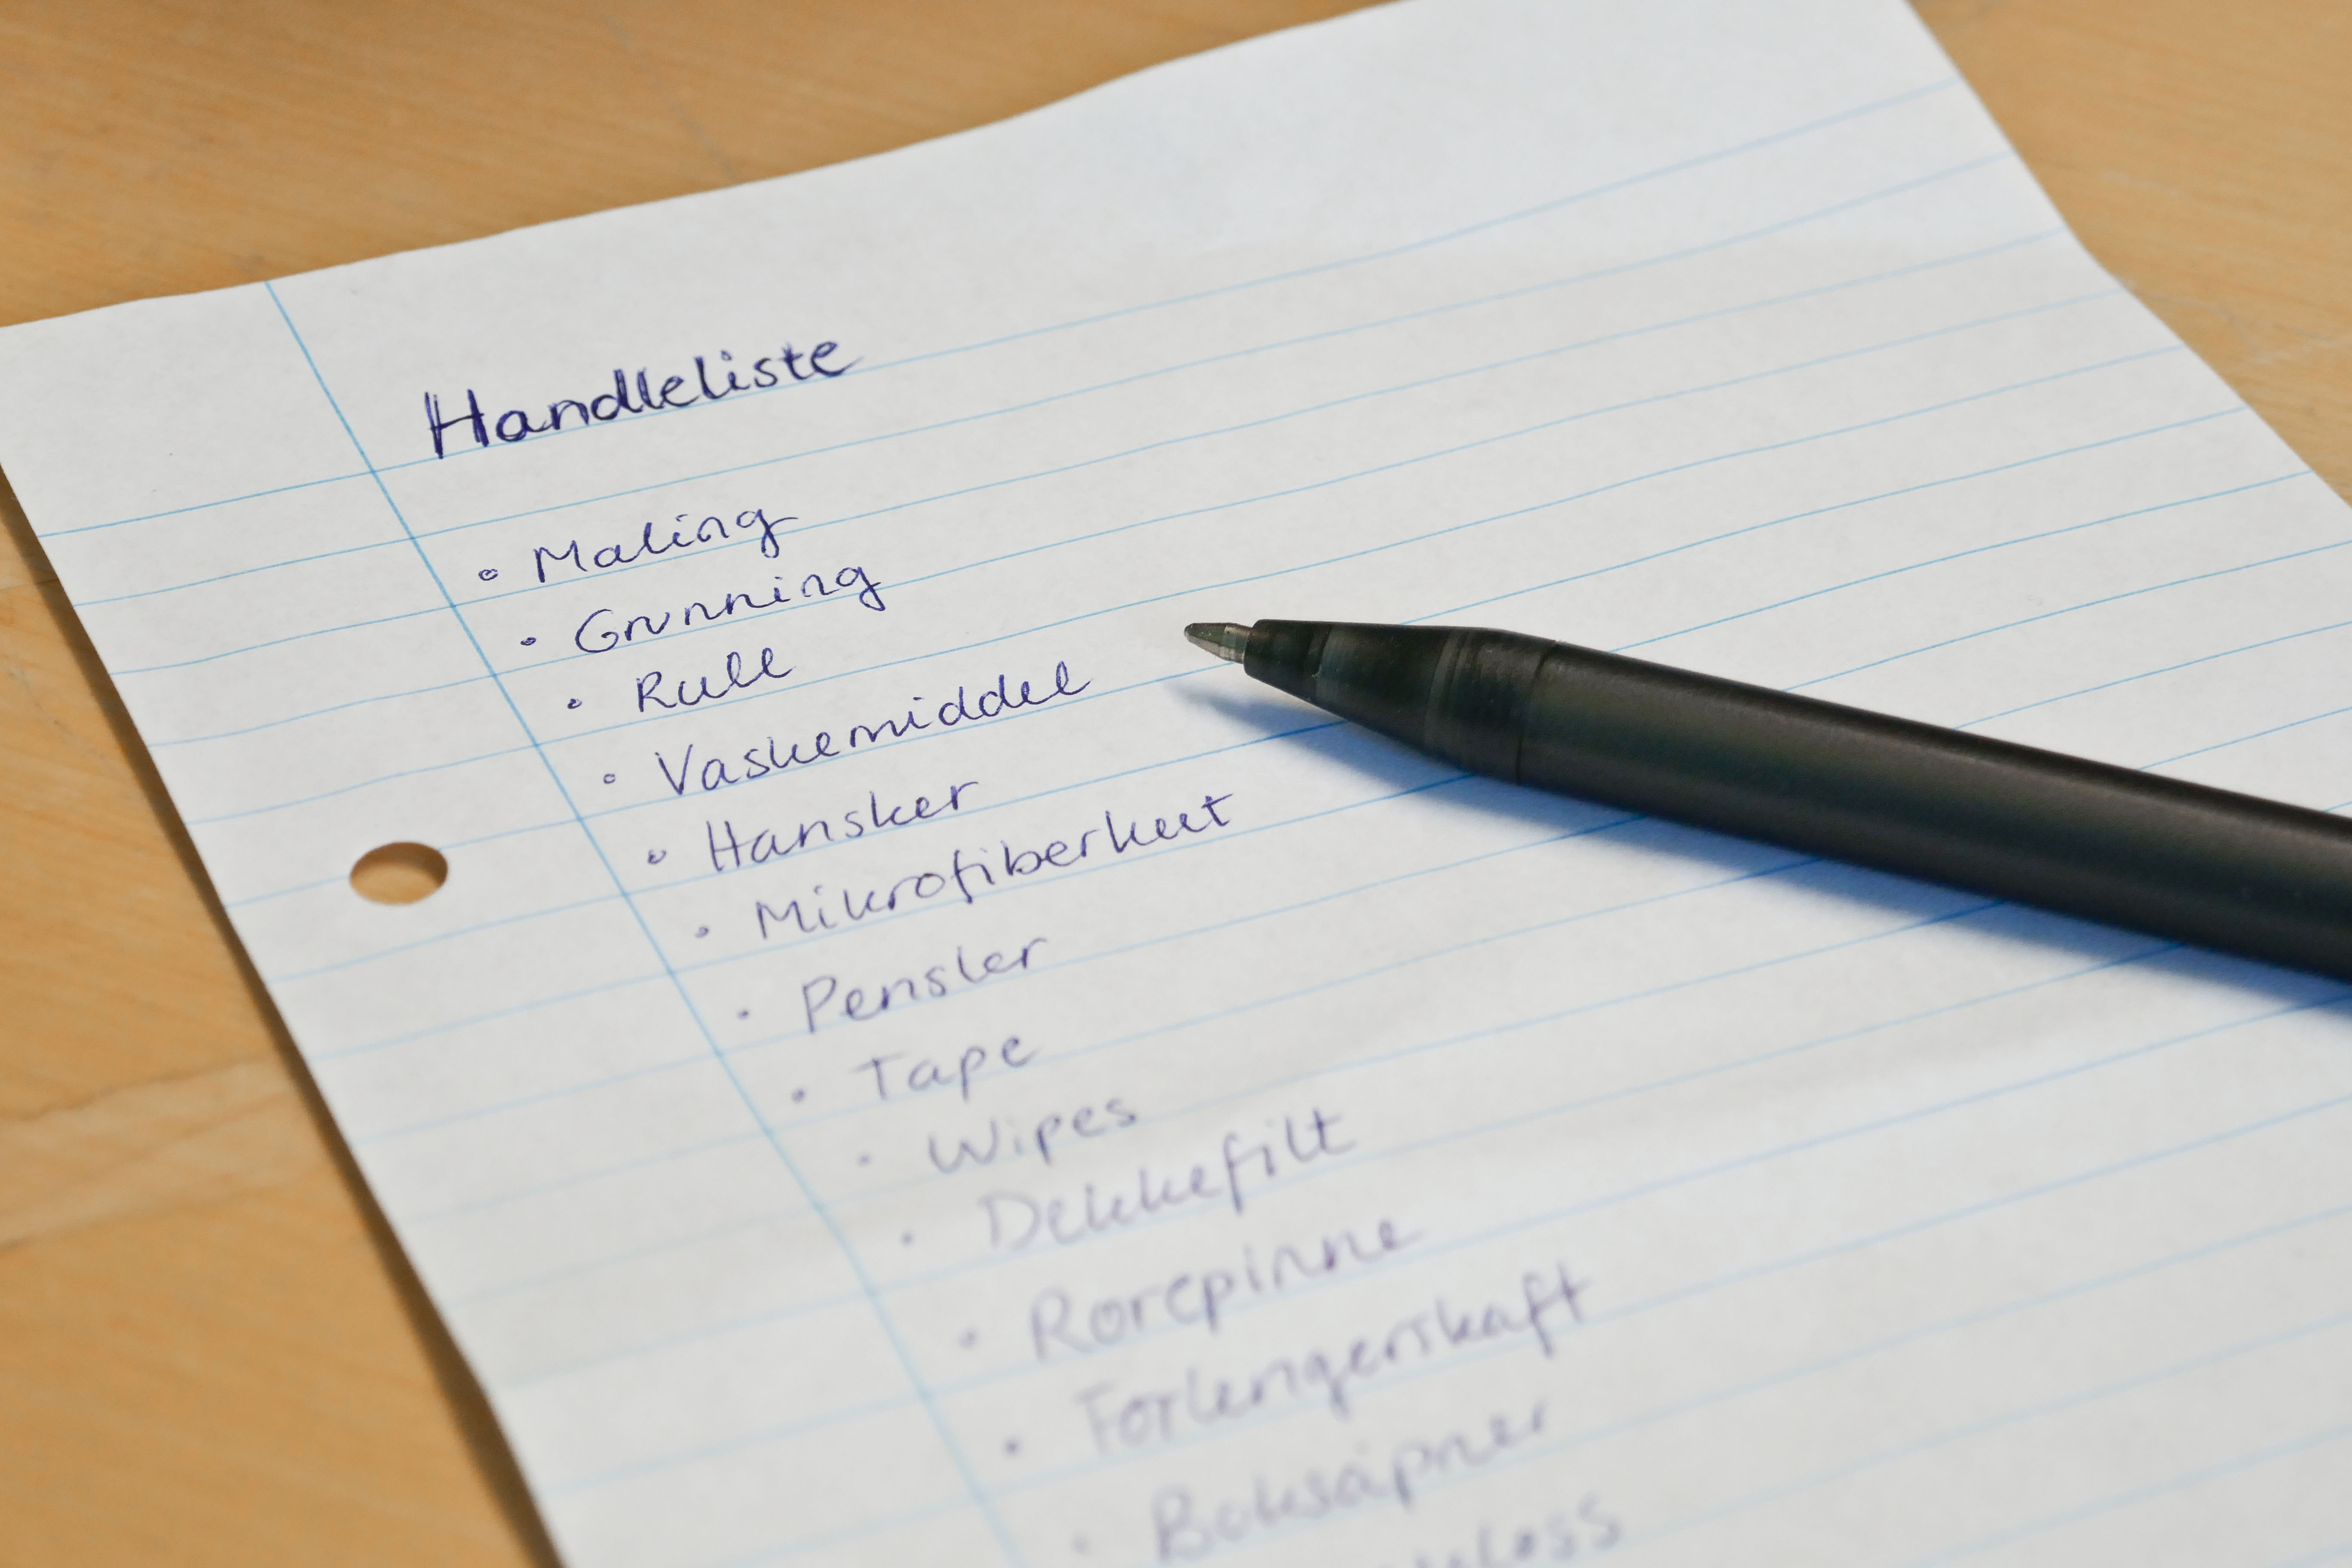 Handleliste
• Maling
• Grunning
• Rull
• Vaskemiddel
• Hansker
• Mikrofiberklut
• Pensler
• Tape
• Wipes
• Dekkefilt
• Rørepinne
• Forlengerskaft
• Boksåpner